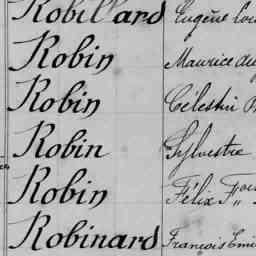 Robillard Eugène
Robin Maurice
Robin Célestin
Robin Sylvestre
Robin Félix
Robinard François